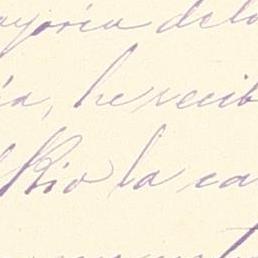 ayoría de lo
a, he recib
Rio la ca